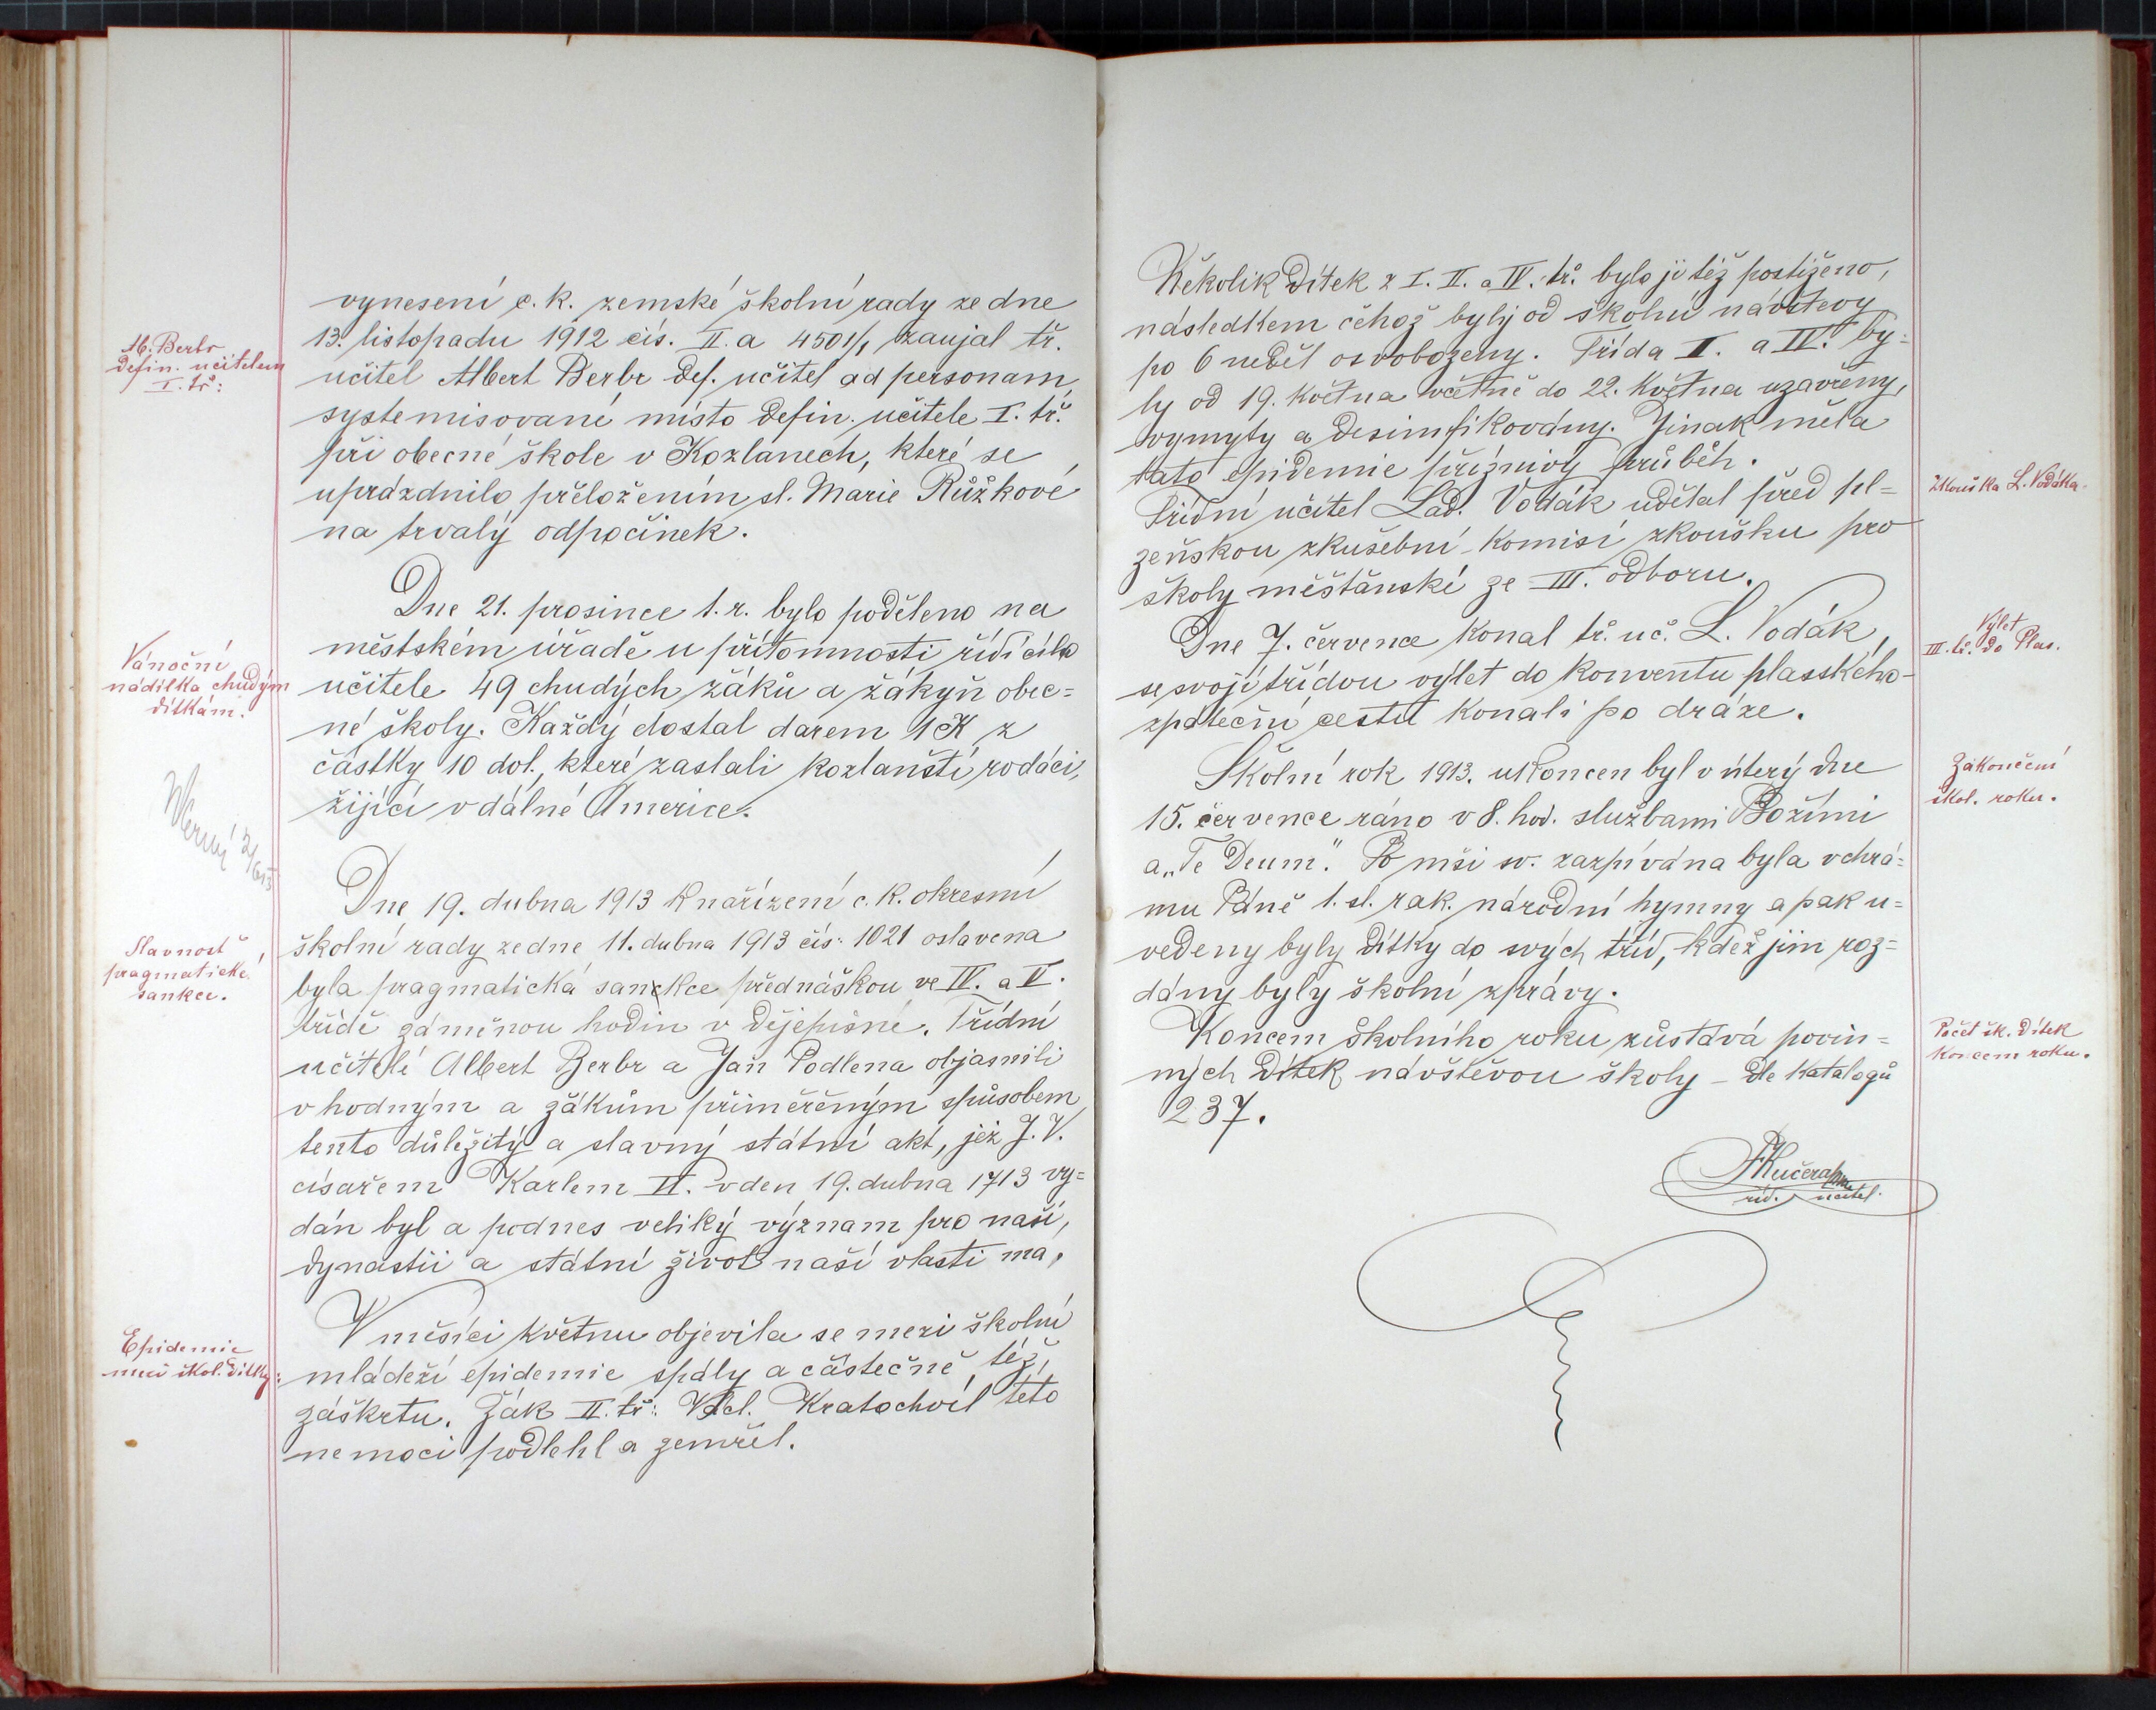 vynesení c. k. zemské školní rady ze dne
13. listopadu 1912 čís. II. a 4501/1 zaujal tř.
Alb. Berbr
defin. učitelem
I. tř:
učitel Albert Berbr def. učitel ad personam,
systemisované místo defin. učitele I. tř.
při obecné škole v Kozlanech, které se
uprázdnilo přeložením sl. Marie Růžkové
na trvalý odpočinek.
Dne 21. prosince t. r. bylo poděleno na
městském úřadě u přítomnosti řídícího
Vánoční
nádílka chudým
dítkám.
učitele 49 chudých žáků a žákyň obec=
né školy. Každý dostal darem 1 K z
částky 10 dol., které zaslali kozlanští rodáci,
žijící v dálné Americe.
Dne 19. dubna 1913 k nařízení c. k. okresní
školní rady ze dne 11. dubna 1913 čís: 1021 oslavena
Slavnosť
pragmatické
sankce.
byla pragmatická sankce přednáškou ve IV. a V.
třídě záměnou hodin v dějepisné. Třídní
učitelé Albert Berbr a Jan Podlena objasnili
vhodným a žákům přiměřeným spůsobem
tento důležitý a slavný státní akt, jež J. V.
císařem Karlem VI. v den 19. dubna 1713 vy=
dán byl a podnes veliký význam pro naší,
dynastii a státní život naší vlasti má.
V měsíci květnu objevila se mezi školní
Epidemie
mezi škol. dítky:
mládeží epidemie spály a částečně též
záškrtu. Žák II. tř: Václ. Kratochvíl této
nemoci podlehl a zemřel.
Několik dítek z I. II. a IV. tř. bylo jí též postiženo,
následkem čehož byly od školní návštevy
po 6 neděl osvobozeny. Třída II. a IV. by=
ly od 19. května včetně do 22. května uzavřeny,
vymyty a desinfikovány. Jinak měla
tato epidemie příznivý průběh.
Třídní učitel Lad. Vodák udělal před pl=
Zkouška L. Vodáka.
zeňskou zkušební komisí zkoušku pro
školy měšťanské ze III. odboru.
Dne 7. července konal tř. uč. L. Vodák,
Výlet
III. tř. do Plas.
se svojí třídou výlet do konventu plasského -
zpáteční cestu konali po dráze.
Školní rok 1913. ukončen byl v úterý dne
Zakončení
škol. roku.
15. července ráno v 8. hod. službami Božími
a „Te Deum." Po mši sv. zazpívána byla v chrá=
mu Páně 1. sl. rak. národní hymny a pak u=
vedeny byly dítky do svých tříd, kdež jim roz=
dány byly školní zprávy.
Koncem školního roku zůstává povin=
Počet šk. dítek
koncem roku.
ných dítek návštěvou školy – dle katalogů
237.
FKučera
říd. učitel.